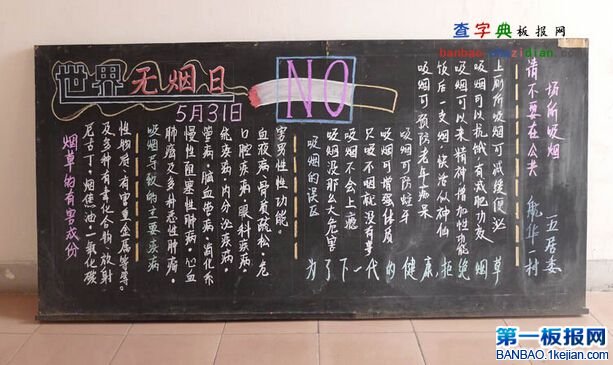 查字典板报网
banbao.chazidian.com
世界无烟日
5月31日
NO
烟草的有害成份
尼古丁,烟焦油,一氧化碳
及多种有害化合物放射
性物质,有害重金属等等。
吸烟导致的主要疾病
肺癌及多种恶性肿瘤,
慢性阻塞性肺病,心血
管病,脑血管病,消化系
统疾病,内分泌疾病,
口腔疾病,眼科疾病,
血液病,骨质疏松,危
害男性性功能。
吸烟的误区
吸烟没那么大危害
吸烟不会上瘾
只吸不咽就没有事
吸烟可增强体质
吸烟可防蛀牙
吸烟可预防老年痴呆
饭后一支烟,快活似神仙
吸烟可以来精神增加性功能
吸烟可以抗饿,有减肥功效
上厕所吸烟可减轻便泌
为了下一代的健康,拒绝烟草
请不要在公共
场所吸烟
航华一村
五居委
第一板报网
BANBAO.1kejian.com